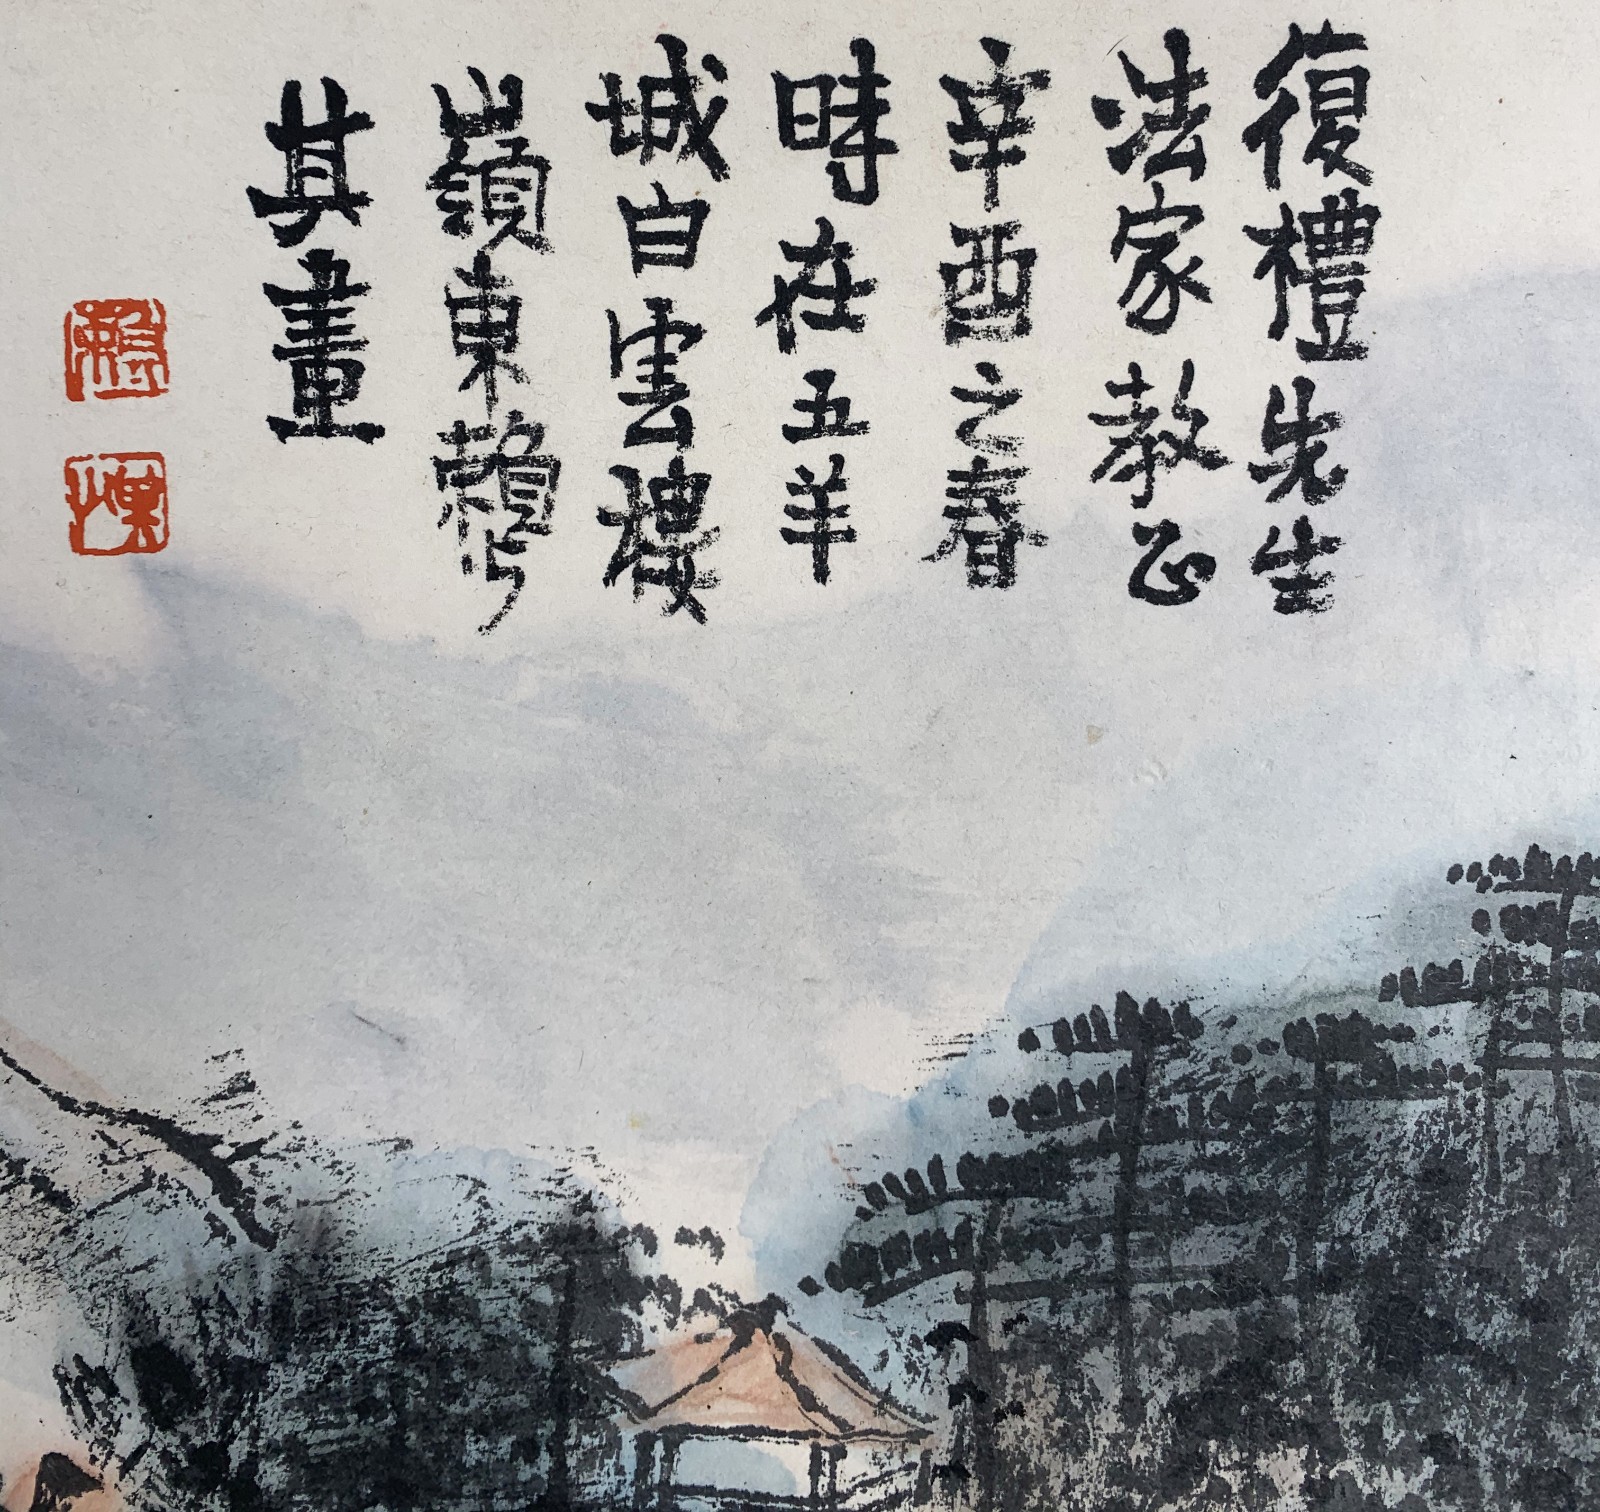 復禮先生
法家教正
辛酉之春
時在五羊
城白雲樓
嶺東賴少
其畫
賴
少其